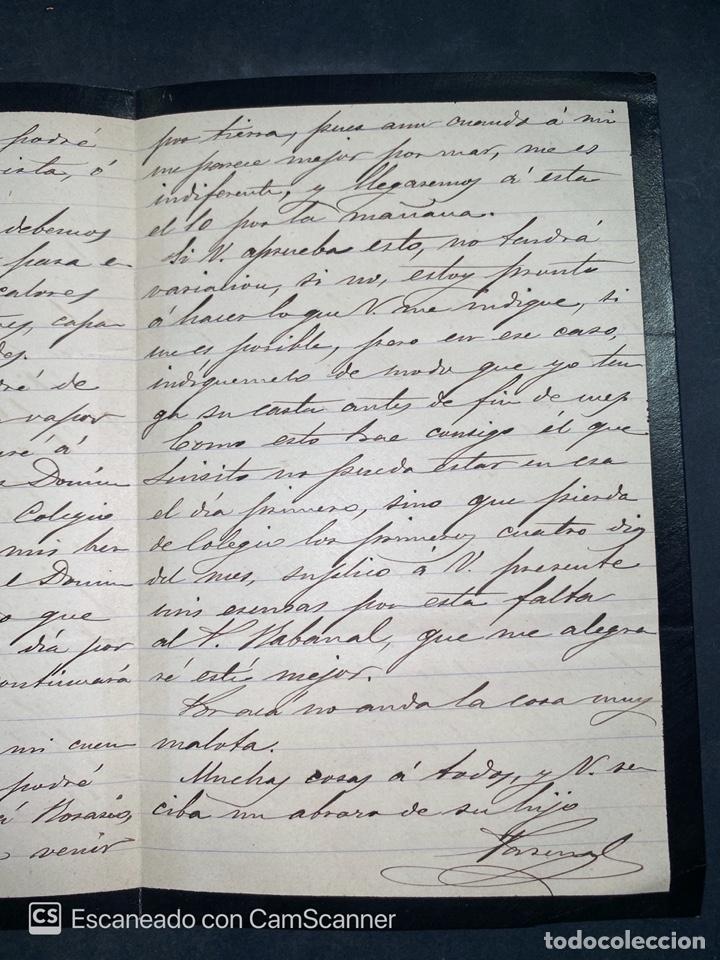 podré
ista, ó
debemos
para e
calores
es, capa
des.
ré de
vapor
ré á
Domin
Colegio
mis her
l Domin
o que
día por
continuará
mi cuen
podré
Rosario,
venir
por tierra, pues aun cuando á mi
me parece mejor por mar, me es
indiferente, y llegaremos á esta
el 10 por la mañana.
Si V. aprueba esto, no tendrá
variation, si no, estoy pronto
á hacer lo que V. me indique, si
me es posible, pero en ese caso,
indíquemelo de modo que yo ten
ga su carta antes de fin de mes.
Como esto trae consigo él que
no pueda estar en esa
el día primero, sino que pierda
de Colegio los primeros cuatro dias
del mes, suplico á V. presente
mis escusas por esta falta
al P. Rabanal, que me alegra
ré esté mejor.
Por acá no anda la cosa muy
malota.
Muchas cosas á todos, y V. re
ciba un abrazo de su hijo
CS Escaneado con CamScanner
todocoleccion